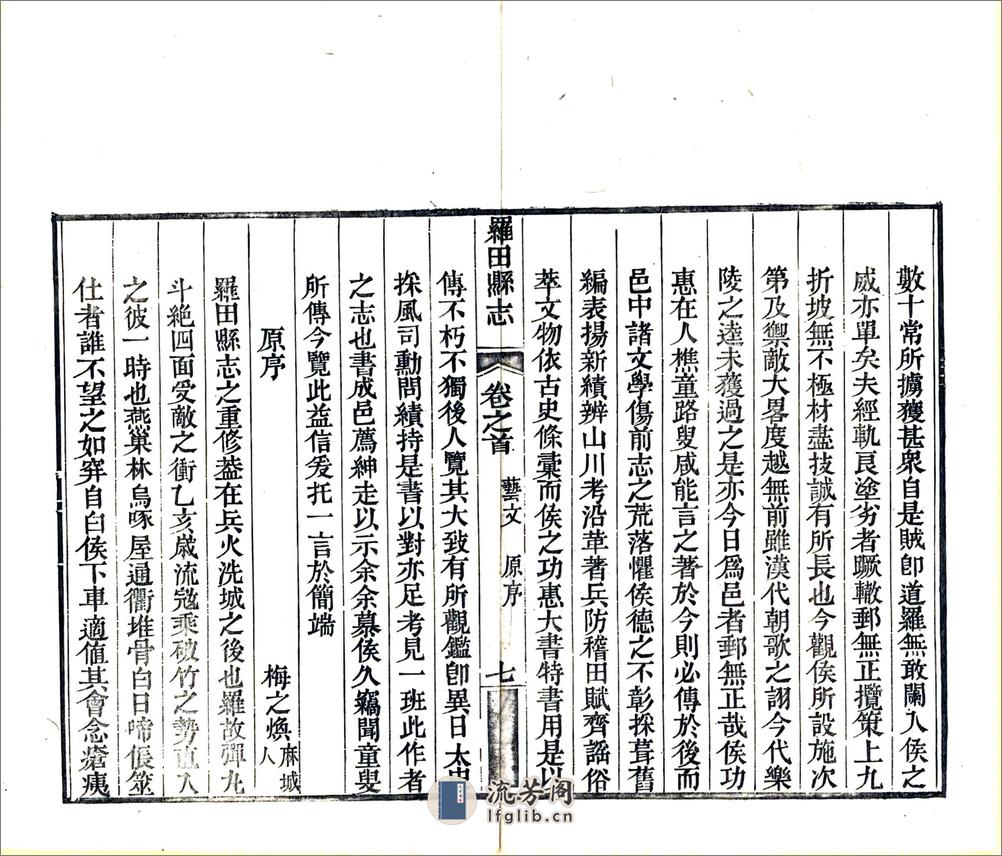 數十常所擄獲甚衆自是賊卽道羅無敢闌入侯之
威亦單矣夫經軌良塗劣者蹶轍郵無正攬策上九
折坡無不極材盡技誠有所長也今觀侯所設施次
第及禦敵大畧度越無前雖漢代朝歌之詡今代樂
陵之逵未獲過之是亦今日爲邑者郵無正哉侯功
惠在人樵童路叟咸能言之著於今則必傳於後而
邑中諸文學傷前志之荒落懼侯德之不彰採葺舊
編表揚新績辨山川考沿革著兵防稽田賦齊謡俗
萃文物依古史條彙而侯之功惠大書特書用是以
羅田縣志
卷之首
藝文
原序
七
傳不朽不獨後人覽其大致有所觀鑑卽異日太史
採風司勳問績持是書以對亦足考見一班此作者
之志也書成邑薦紳走以示余余慕侯久竊聞童叟
所傳今覽此益信爰托一言於簡端
原序
梅之煥麻城人
羅田縣志之重修葢在兵火洗城之後也羅故彈丸
斗絕四面受敵之衝乙亥歲流寇乘破竹之勢直入
之彼一時也燕巢林烏啄屋通衢堆骨白日啼倀筮
仕者誰不望之如穽自白侯下車適值其會念瘡痍
流芳阁
lfglib.cn